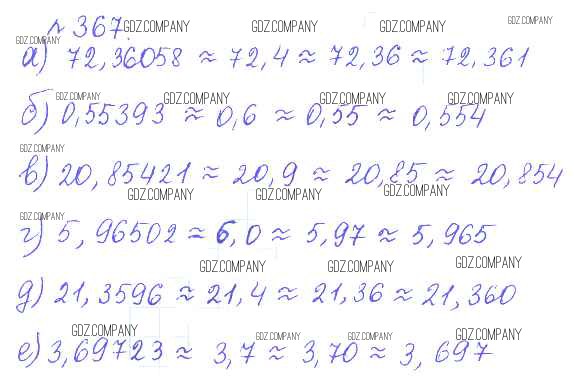 № 367. GDZ.COMPANY GDZ.COMPANY GDZ.COMPANY GDZ.COMPANY
GDZ.COMPANY
а) 72,36058 ≈ 72,4 ≈ 72,36 ≈ 72,361
GDZ.COMPANY GDZ.COMPANY GDZ.COMPANY GDZ.COMPANY
б) 0,55393 ≈ 0,6 ≈ 0,55 ≈ 0,554
GDZ.COMPANY
в) 20,85421 ≈ 20,9 ≈ 20,85 ≈ 20,854
GDZ.COMPANY GDZ.COMPANY GDZ.COMPANY
GDZ.COMPANY
г) 5,96502 ≈ 6,0 ≈ 5,97 ≈ 5,965
GDZ.COMPANY GDZ.COMPANY GDZ.COMPANY
д) 21,3596 ≈ 21,4 ≈ 21,36 ≈ 21,360
GDZ.COMPANY GDZ.COMPANY GDZ.COMPANY GDZ.COMPANY
е) 3,69723 ≈ 3,7 ≈ 3,70 ≈ 3,697